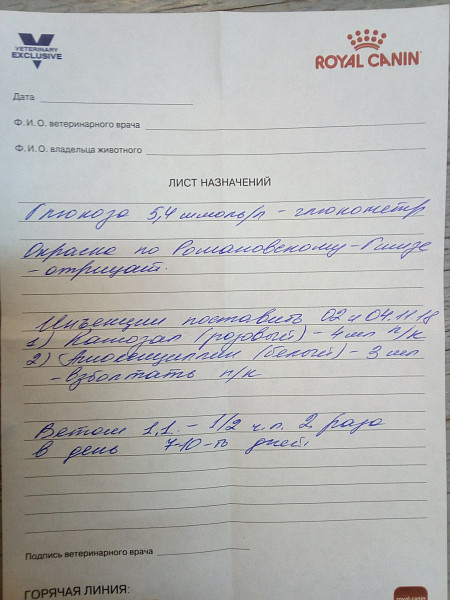 VETERINARY
EXCLUSIVE
ROYAL CANIN
Дата
Ф.И.О. ветеринарного врача
Ф.И.О. владельца животного
ЛИСТ НАЗНАЧЕНИЙ
Глюкоза 5,4 ммоль/л - глюкометр
Окраска по Романовскому-Гимзе
- отрицат.
Инъекции поставить 02 и 04.11.18
1) Катозал (розовый) - 4 мл п/к
2) Амоксициллин (белый) - 3 мл
- взболтать п/к
Ветом 1,1. - 1/2 ч.л. 2 раза
в день 7-10-ть дней.
Подпись ветеринарного врача
ГОРЯЧАЯ ЛИНИЯ:
royal canin